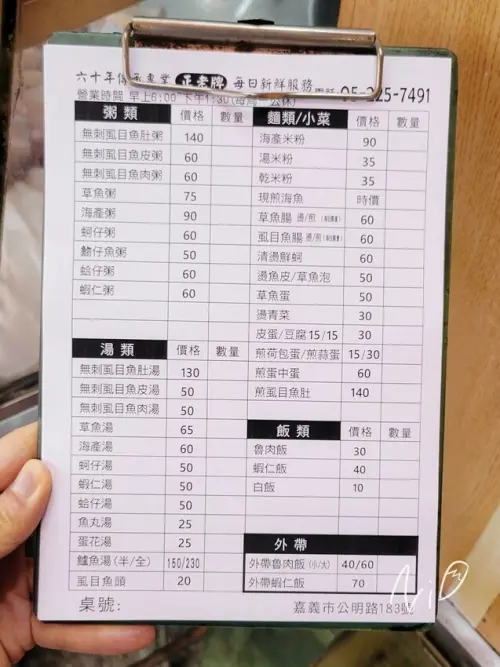 六十年傳承老堂 正老牌 每日新鮮服務
營業時間 早上6:00 下午1:30 05-225-7491
粥類 價格 數量
無刺虱目魚肚粥 140
無刺虱目魚皮粥 60
無刺虱目魚肉粥 60
草魚粥 75
海產粥 90
蚵仔粥 60
魩仔魚粥 50
蛤仔粥 60
蝦仁粥 60
湯類 價格 數量
無刺虱目魚肚湯 130
無刺虱目魚皮湯 50
無刺虱目魚肉湯 50
草魚湯 65
海產湯 60
蚵仔湯 50
蝦仁湯 50
蛤仔湯 50
魚丸湯 25
蛋花湯 25
鱸魚湯(半/全) 150/230
虱目魚頭 20
桌號:
麵類/小菜 價格 數量
海產米粉 90
湯米粉 35
乾米粉 35
現煎海魚 時價
草魚腸 燙/煎 60
虱目魚腸 燙/煎 60
清燙鮮蚵 60
燙魚皮/草魚泡 50
草魚蛋 50
燙青菜 30
皮蛋/豆腐15/15 30
煎荷包蛋/煎蒜蛋 15/30
煎蛋中蛋 60
煎虱目魚肚 140
飯類 價格 數量
魯肉飯 30
蝦仁飯 40
白飯 10
外帶
外帶魯肉飯(小/大) 40/60
外帶蝦仁飯 70
嘉義市公明路183號